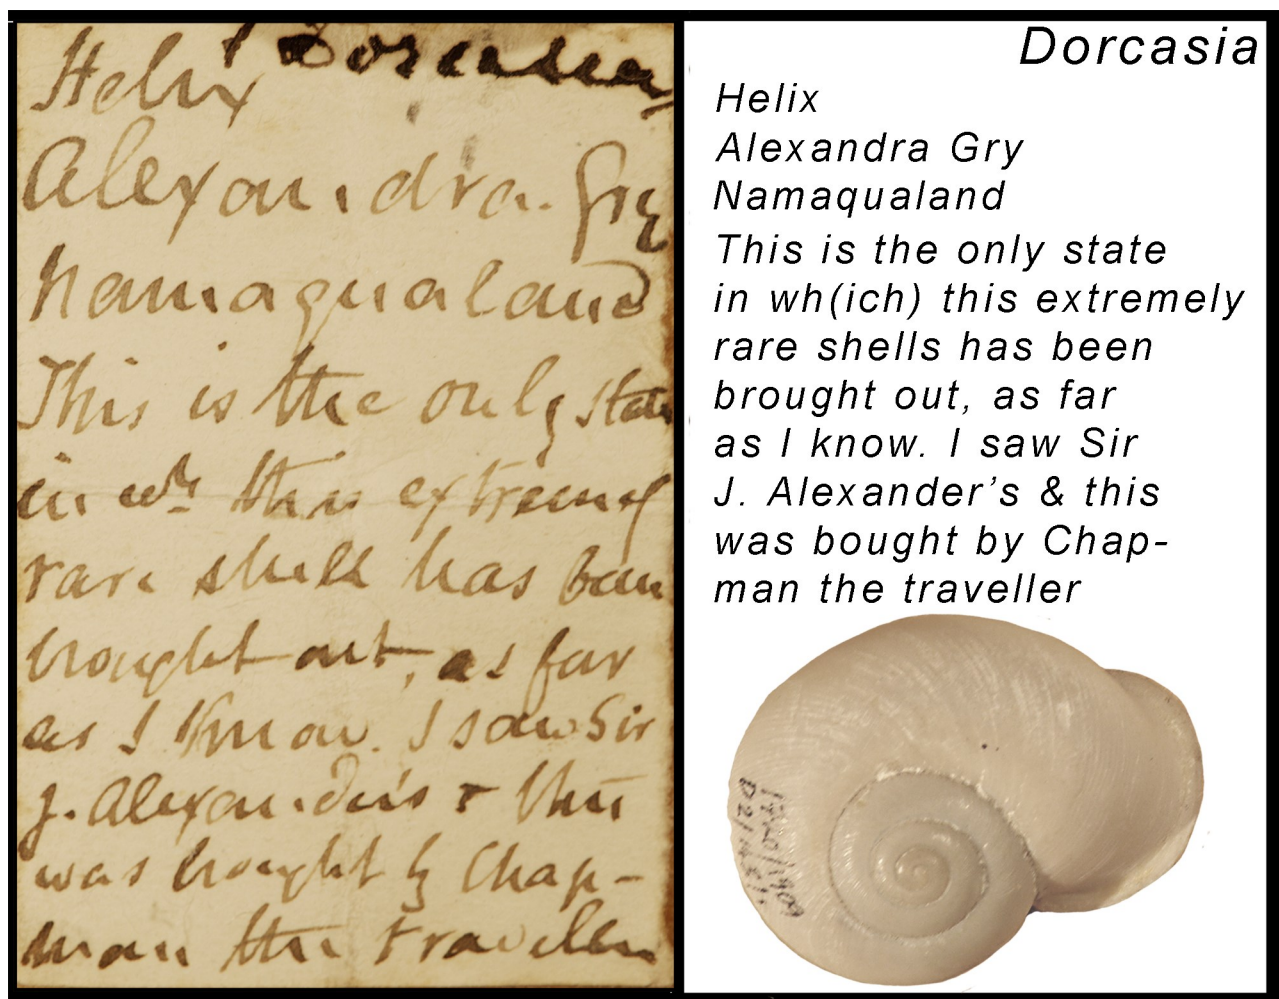 Dorcasia
Helix
Alexandra. Gry
Namaqualand
This is the only state
in wh this extremely
rare shell has been
brought out, as far
as I know. I saw Sir
J. Alexander's & this
was brought by Chap-
man the traveller
Dorcasia
Helix
Alexandra Gry
Namaqualand
This is the only state
in wh(ich) this extremely
rare shells has been
brought out, as far
as I know. I saw Sir
J. Alexander’s & this
was bought by Chap-
man the traveller